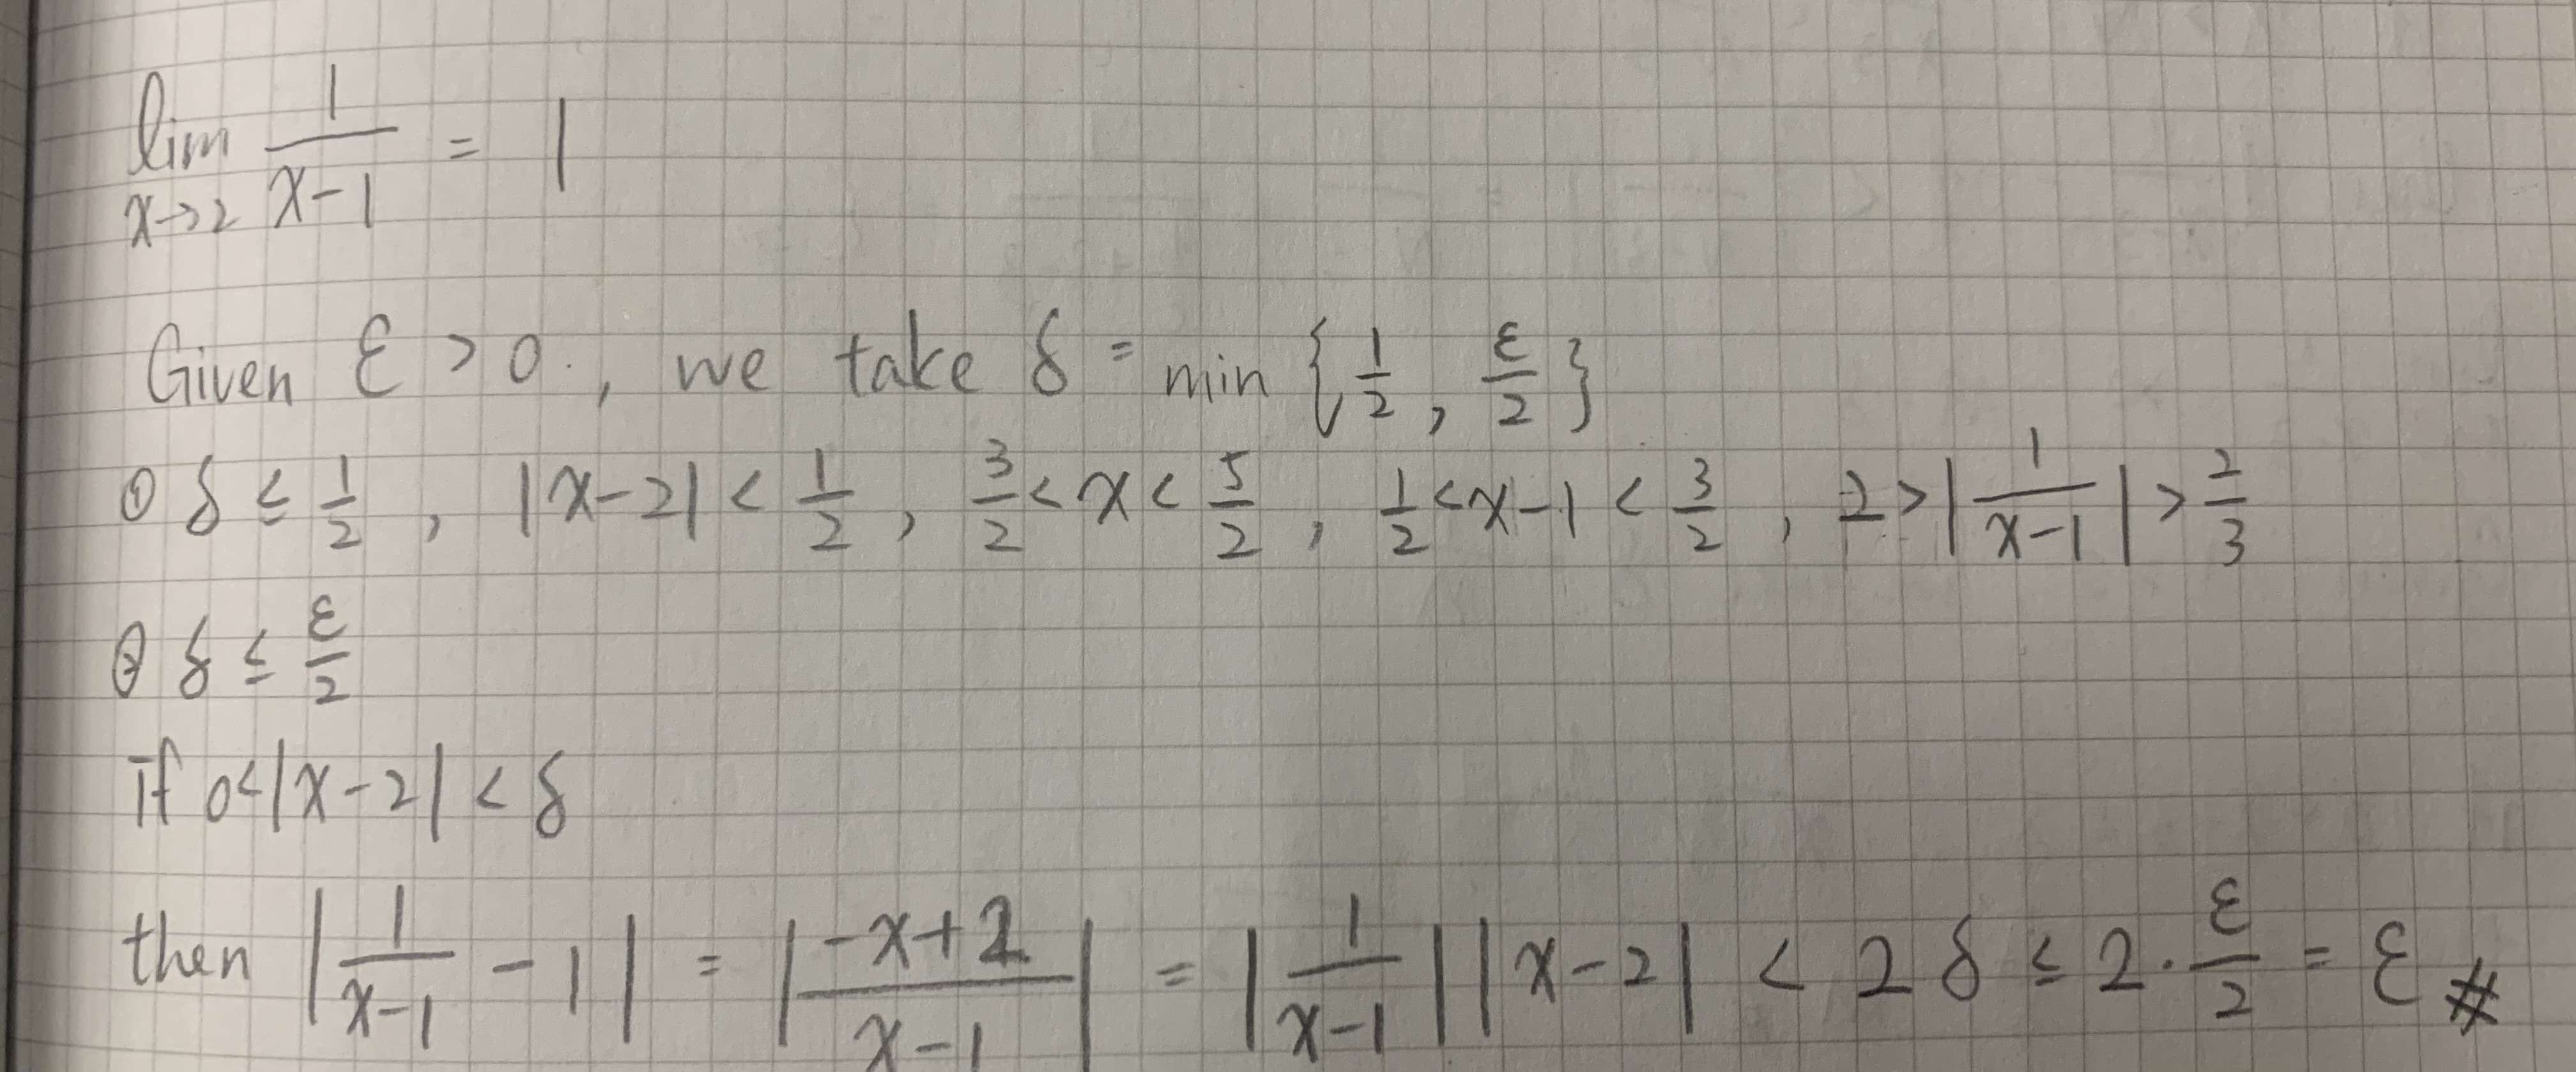 lim x→2 1/(x-1) = 1
Given ε > 0, we take δ = min {1/2, ε/2}
① δ ≤ 1/2, |x-2| < 1/2, 3/2 < x < 5/2, 1/2 < x-1 < 3/2, 2 > |1/(x-1)| > 2/3
② δ ≤ ε/2
If 0<|x-2| < δ
then |1/(x-1) - 1| = |(-x+2)/(x-1)| = |1/(x-1)||x-2| < 2δ ≤ 2·ε/2 = ε #